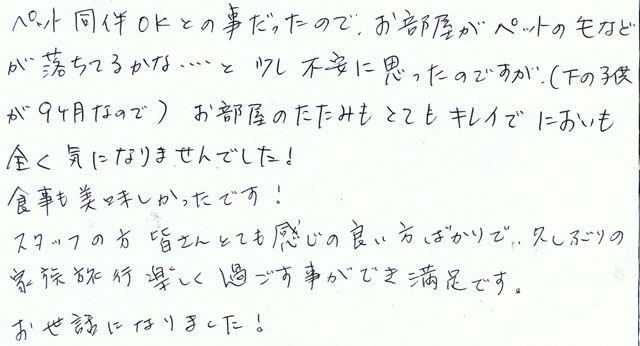 ペット同伴OKとの事だったので、お部屋がペットの毛など
が落ちてるかな‥‥と少し不安に思ったのですが、(下の子供
が9ヶ月なので) お部屋のたたみもとてもキレイでにおいも
全く気になりませんでした!
食事も美味しかったです!
スタッフの方皆さんとても感じの良い方ばかりで、久しぶりの
家族旅行楽しく過ごす事ができ満足です。
お世話になりました!